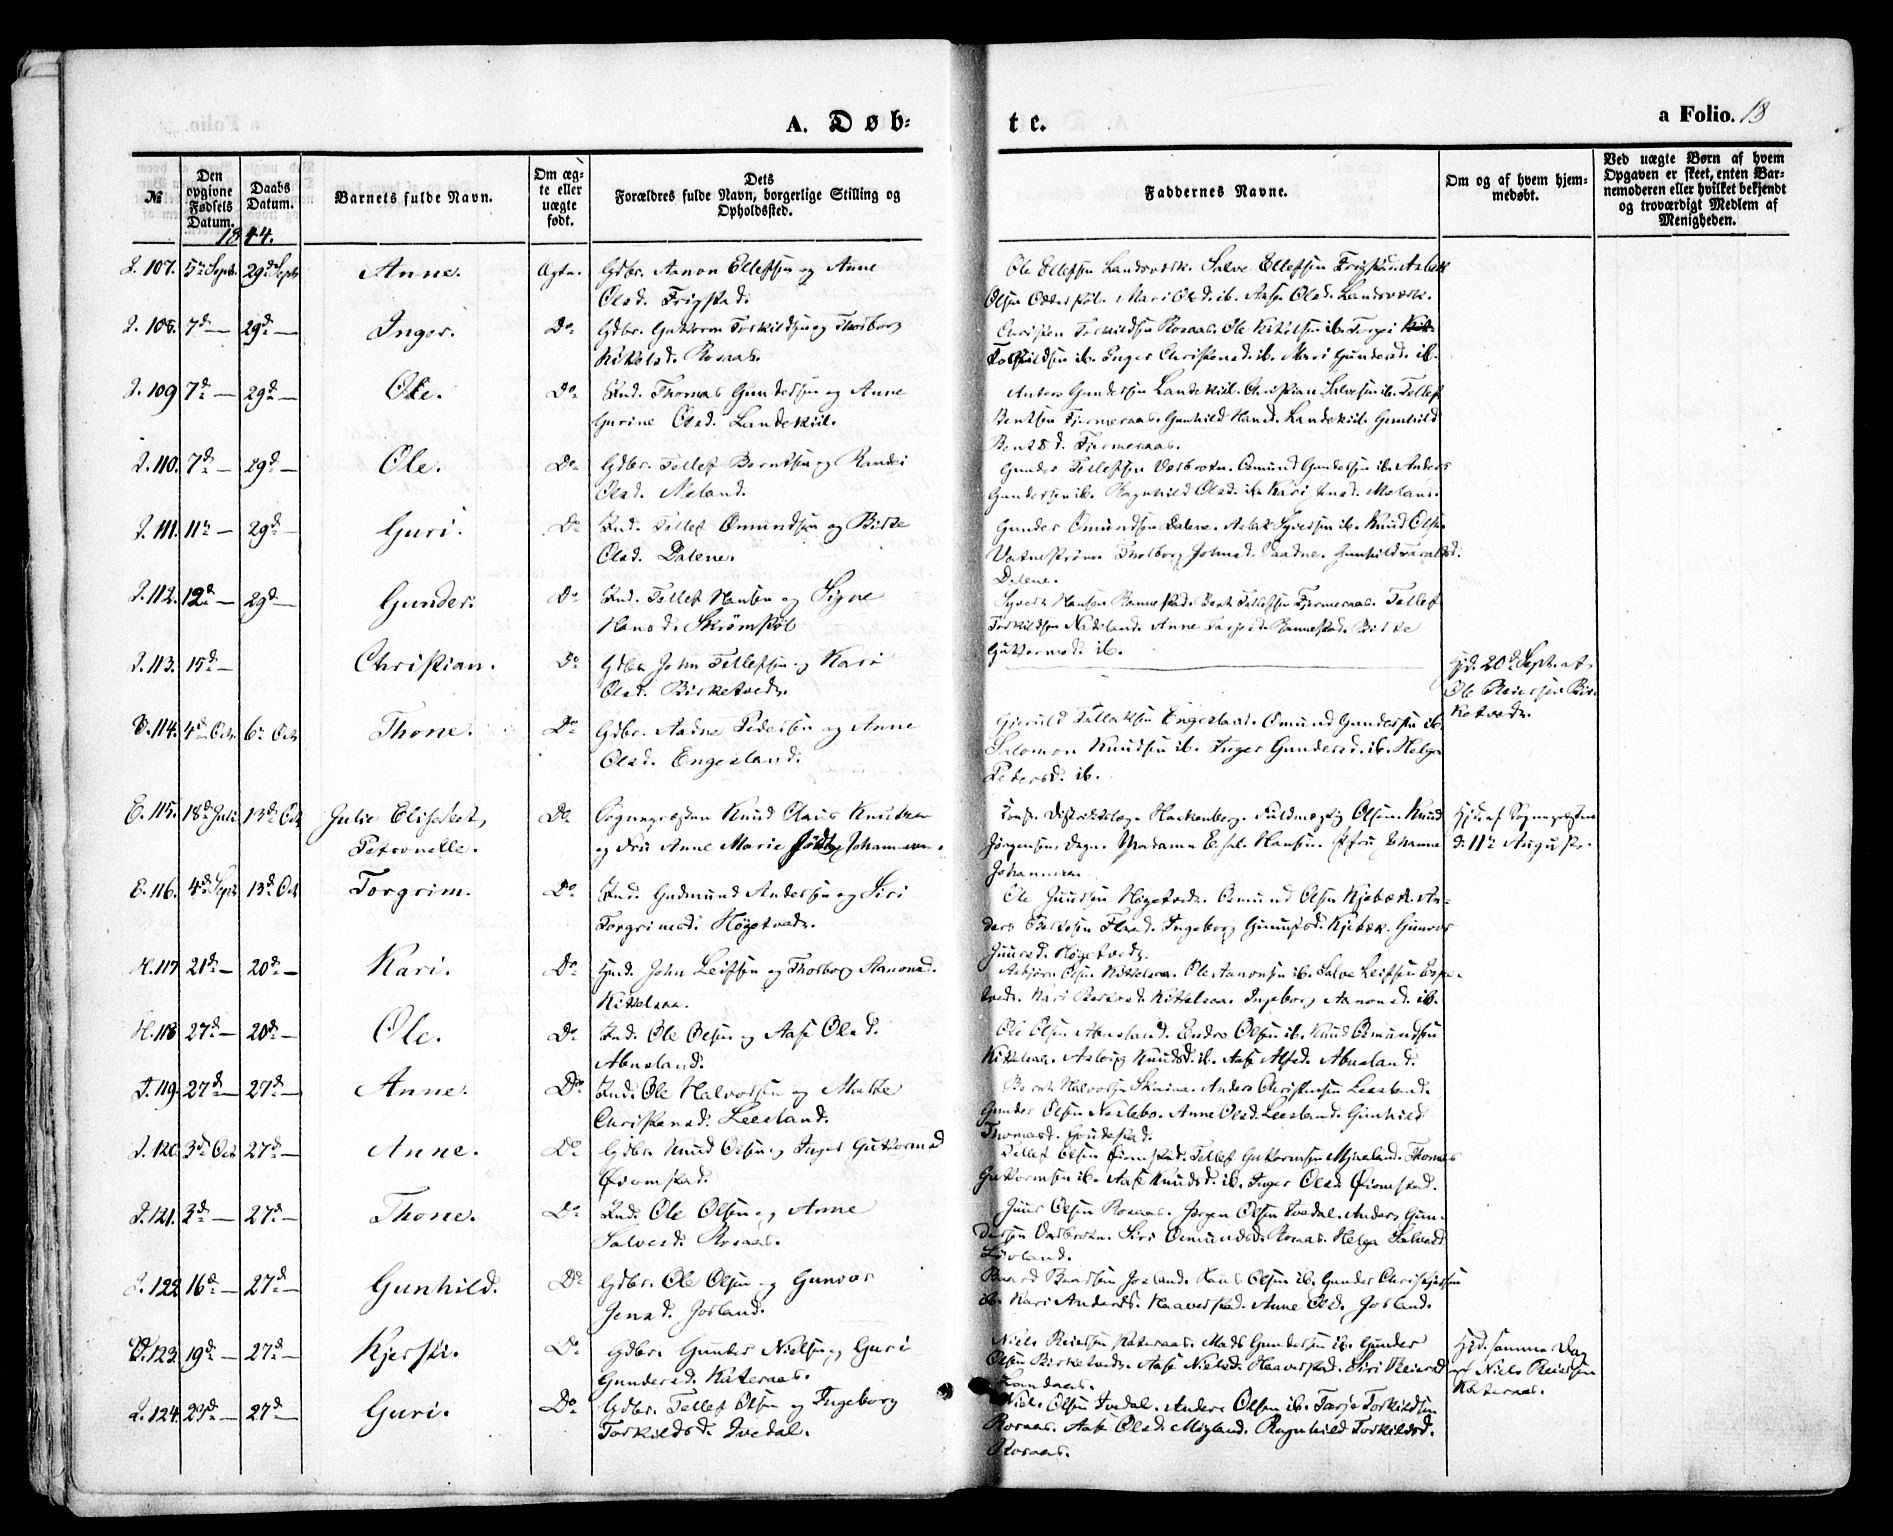 A. Døb-
te.
a Folio. 18
№
Den opgivne Fødsels Datum.
Daabs Datum.
Barnets fulde Navn.
Om æg- te eller uægte født.
Dets Forældres fulde Navn, borgerlige Stilling og Opholdssted.
Faddernes Navne.
Om og af hvem hjem- medøbt.
Ved uægte Børn af hvem Opgaven er skeet, enten Bar- nemoderen eller hvilket bekjendt og troværdigt Medlem af Menigheden.
1844.
107. 5te Septr 29d Septr Anne. Ægte. Gdbr. Aanon Ellefsen og Anne
Olsd. Frigstad.
Ole Ellefsen Landsværk. Salve Ellefsen Frigstad.
Olsen. Mari Olsd. ib. Aase Olsd. Landsværk.
108. 7d 29d Inger. Do Gdbr. Guttorm Torkildsen og Thorborg
Kittelsd. Rosaas.
Christen Torkildsen Rosaas. Ole Kittelsen ib. Terge
Torkildsen ib. Inger Christensd. ib. Mari Gundersd. ib.
109 7d 29d Ole. Do Ind. Thomas Gundersen og Anne
Gurine Olsd. Landekiil.
Anders Gundersen Landekiil. Christian Salvesen ib. Tellef
Bentsen Fjermeraas. Gunhild Hansd. Landekiil. Gunhild
Bentsd. Fjermeraas.
110. 7d 29d Ole. Do Gdbr. Tellef Berntsen og Randei
Olsd. Meland.
Gunder Tellefsen Vasbrotn. Osmund Gundersen ib. Anders
Gundersen ib. Ragnhild Olsd. ib. Kari Jensd. Meland.
111. 11te 29d Guri. Do Ind. Tellef Omundsen og Birte
Olsd. Dalene.
Gunder Omundsen Dalene. Aslak Syversen ib. Knud Olsen
Vatnstrøm. Thorborg Johnsd. Gunhild
Dalene.
112. 12d 29d Gunder. Do Ind. Tellef Hansen og Signe
Hansd. Strømstøl
Syvert Hansen Rannestad. Bent Tellefsen Fjermeraas. Tellef
Torkildsen. Anne Tarjeisd. Rannestad. Birte
Guttormsd. ib.
113. 15d Christian. Do Gdbr. John Tellefsen og Kari
Olsd. Birketvedt.
Hjd. 20d Sept. af
Ole Reiersen Bir-
ketvedt.
114. 4d Octr. 6te Octr Thone. Do Gdbr. Aadne Pedersen og Anne
Olsd. Engesland.
Gjeruld Tellaksen Engesland. Osmund Gundersen ib.
Salomon Knudsen ib. Inger Gundersd. ib. Helga
Petersd. ib.
E. 115. 18d Juli 13d Octr Julie Elisabet, Do Sognepræsten Knud Claus Knutzen
Petronelle. og Fru Anne Marie født Johannesen.
Distriktslæge Hackenberg. Fuldmægtig Olsen. Knud
Jørgensen Dagn. Madame Hansen. Frøken Hanne
Johannesen.
Hjd. af Sognepræsten
d. 11te August.
E. 116. 4d Septr 13d Octr Torgrim. Do Ind. Gudmund Andersen og Siri
Torgrimsd. Høgetvedt.
Ole Juulsen Høgetvedt. Osmund Olsen Kjebæk. An-
ders Flaad. Ingeborg Kjebæk. Gunvor
Juulsd. Høgetvedt.
H. 117 21d 20d Kari. Do Hjmd. John Leifsen og Thorborg Aanonsd.
Kittelsaa.
Asbjørn Olsen Kittelsaa. Ole Aanonsen ib. Salve Leifsen Espe-
tvedt. Kari Kittelsaa. Ingeborg Aanonsd. ib.
H. 118 27d 20d Ole. Do Ind. Ole Olsen og Aase Olsd.
Abusland.
Ole Olsen Abusland. Endre Olsen ib. Knud Osmundsen
Kittelsaa. Asborg Knudsd. ib. Aase Alfsd. Abusland.
119. 27d 27d Anne. Do Ind. Ole Halvorsen og Marte
Christensd. Leesland.
Bernt Halvorsen. Anders Christensen Leesland.
Gunder Olsen Neslebo. Anne Olsd. Leesland. Gunhild
Thomasd.
120. 3d Octr 27d Anne. Do Gdbr. Knud Olsen og Inger Guttormsd
Øiomstad.
Tellef Olsen Øiomstad. Tellef Guttormsen Mjaaland. Thomas
Guttormsen ib. Aase Knudsd. ib. Inger Olsd. Øiomstad.
121. 3d 27d Thone. Do Ind. Ole Olsen og Anne
Salvesd. Rosaas.
Juul Olsen Rosaas. Jørgen Olsen Ivedal. Anders Gun-
dersen Vasbrotn. Siri Osmundsd. Rosaas. Helga Salvesd
Løvland.
122 16d 27d Gunhild. Do Gdbr. Ole Olsen og Gunvor
Jensd. Jorland.
Baard Baardsen Jorland. Hans Olsen ib. Gunder Christensen
ib. Kari Andersd. Haaverstad. Anne Olsd. Jorland.
123. 19d 27d Kjersti. Do Gdbr. Gunder Nielsen og Guri
Gundersd. Kateraas.
Niels Reiersen Kateraas. Mads Gundersen ib. Gunder
Olsen Birketvedt. Aase Nielsd. Haaverstad. Siri Reiersd
Landaas.
Hjd. samme Dag
af Niels Reiersen
Kateraas.
124. 23d 27d Guri. Do Gdbr. Tellef Olsen og Ingeborg
Torkildsd. Ivedal.
Niels Olsen Ivedal. Anders Olsen ib. Tarje Torkildsen
Rosaas. Aase Olsd. Migland. Ragnhild Torkildsd.
Rosaas.